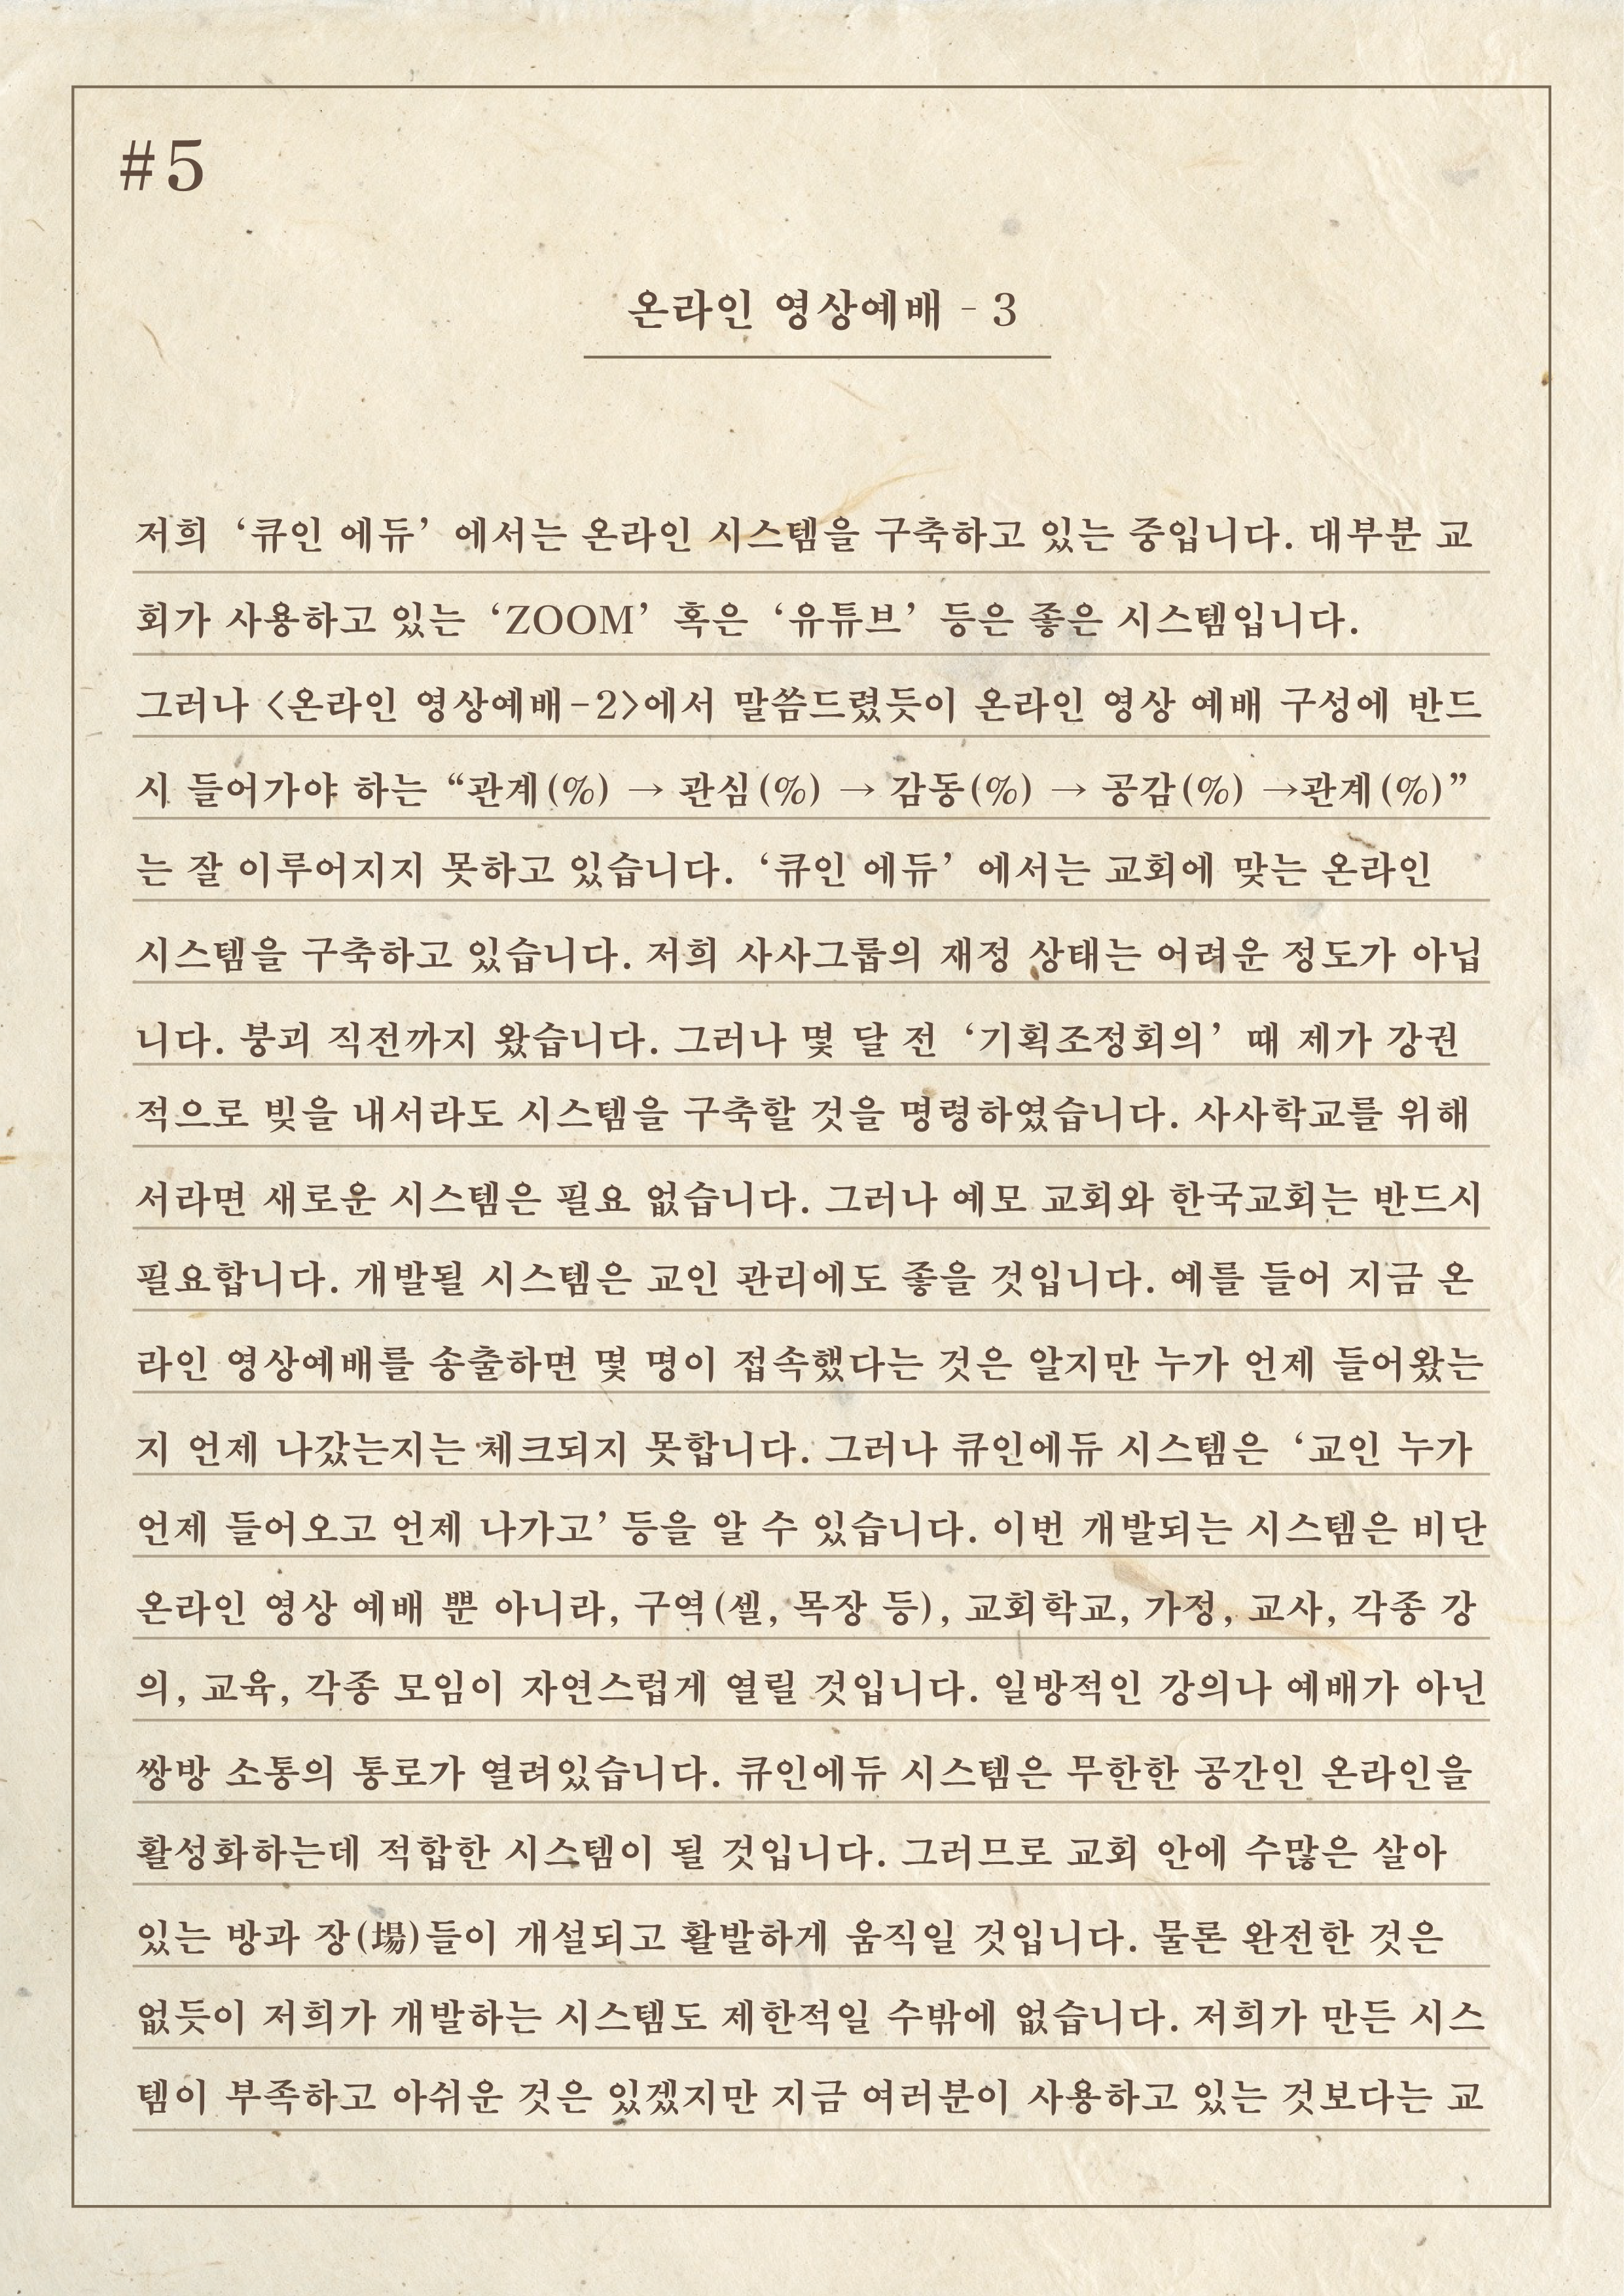 #5
온라인 영상예배 - 3
저희 ‘큐인 에듀’ 에서는 온라인 시스템을 구축하고 있는 중입니다. 대부분 교
회가 사용하고 있는 ‘ZOOM’ 혹은 ‘유튜브’ 등은 좋은 시스템입니다.
그러나 <온라인 영상예배-2>에서 말씀드렸듯이 온라인 영상 예배 구성에 반드
시 들어가야 하는 “관계(%) → 관심(%) → 감동(%) → 공감(%) →관계(%)”
는 잘 이루어지지 못하고 있습니다. ‘큐인 에듀’ 에서는 교회에 맞는 온라인
시스템을 구축하고 있습니다. 저희 사사그룹의 재정 상태는 어려운 정도가 아닙
니다. 붕괴 직전까지 왔습니다. 그러나 몇 달 전 ‘기획조정회의’ 때 제가 강권
적으로 빚을 내서라도 시스템을 구축할 것을 명령하였습니다. 사사학교를 위해
서라면 새로운 시스템은 필요 없습니다. 그러나 예모 교회와 한국교회는 반드시
필요합니다. 개발될 시스템은 교인 관리에도 좋을 것입니다. 예를 들어 지금 온
라인 영상예배를 송출하면 몇 명이 접속했다는 것은 알지만 누가 언제 들어왔는
지 언제 나갔는지는 체크되지 못합니다. 그러나 큐인에듀 시스템은 ‘교인 누가
언제 들어오고 언제 나가고’ 등을 알 수 있습니다. 이번 개발되는 시스템은 비단
온라인 영상 예배 뿐 아니라, 구역(셀, 목장 등), 교회학교, 가정, 교사, 각종 강
의, 교육, 각종 모임이 자연스럽게 열릴 것입니다. 일방적인 강의나 예배가 아닌
쌍방 소통의 통로가 열려있습니다. 큐인에듀 시스템은 무한한 공간인 온라인을
활성화하는데 적합한 시스템이 될 것입니다. 그러므로 교회 안에 수많은 살아
있는 방과 장(場)들이 개설되고 활발하게 움직일 것입니다. 물론 완전한 것은
없듯이 저희가 개발하는 시스템도 제한적일 수밖에 없습니다. 저희가 만든 시스
템이 부족하고 아쉬운 것은 있겠지만 지금 여러분이 사용하고 있는 것보다는 교